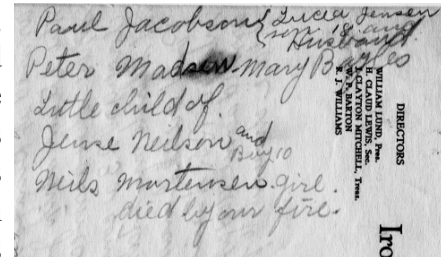 Paul Jacobson { Lucia Jensen
son 18 and
Husband
Peter Madsen - Mary Bayles
Little child of
Jense Neilson and
Boy 10
Neils Mortensen girl.
died by our fire.
DIRECTORS
WILLIAM LUND, Pres.
H. CLAUD LEWIS, Sec.
J. CLAYTON MITCHELL, Treas.
W. P. BARTON
R. J. WILLIAMS
Iro